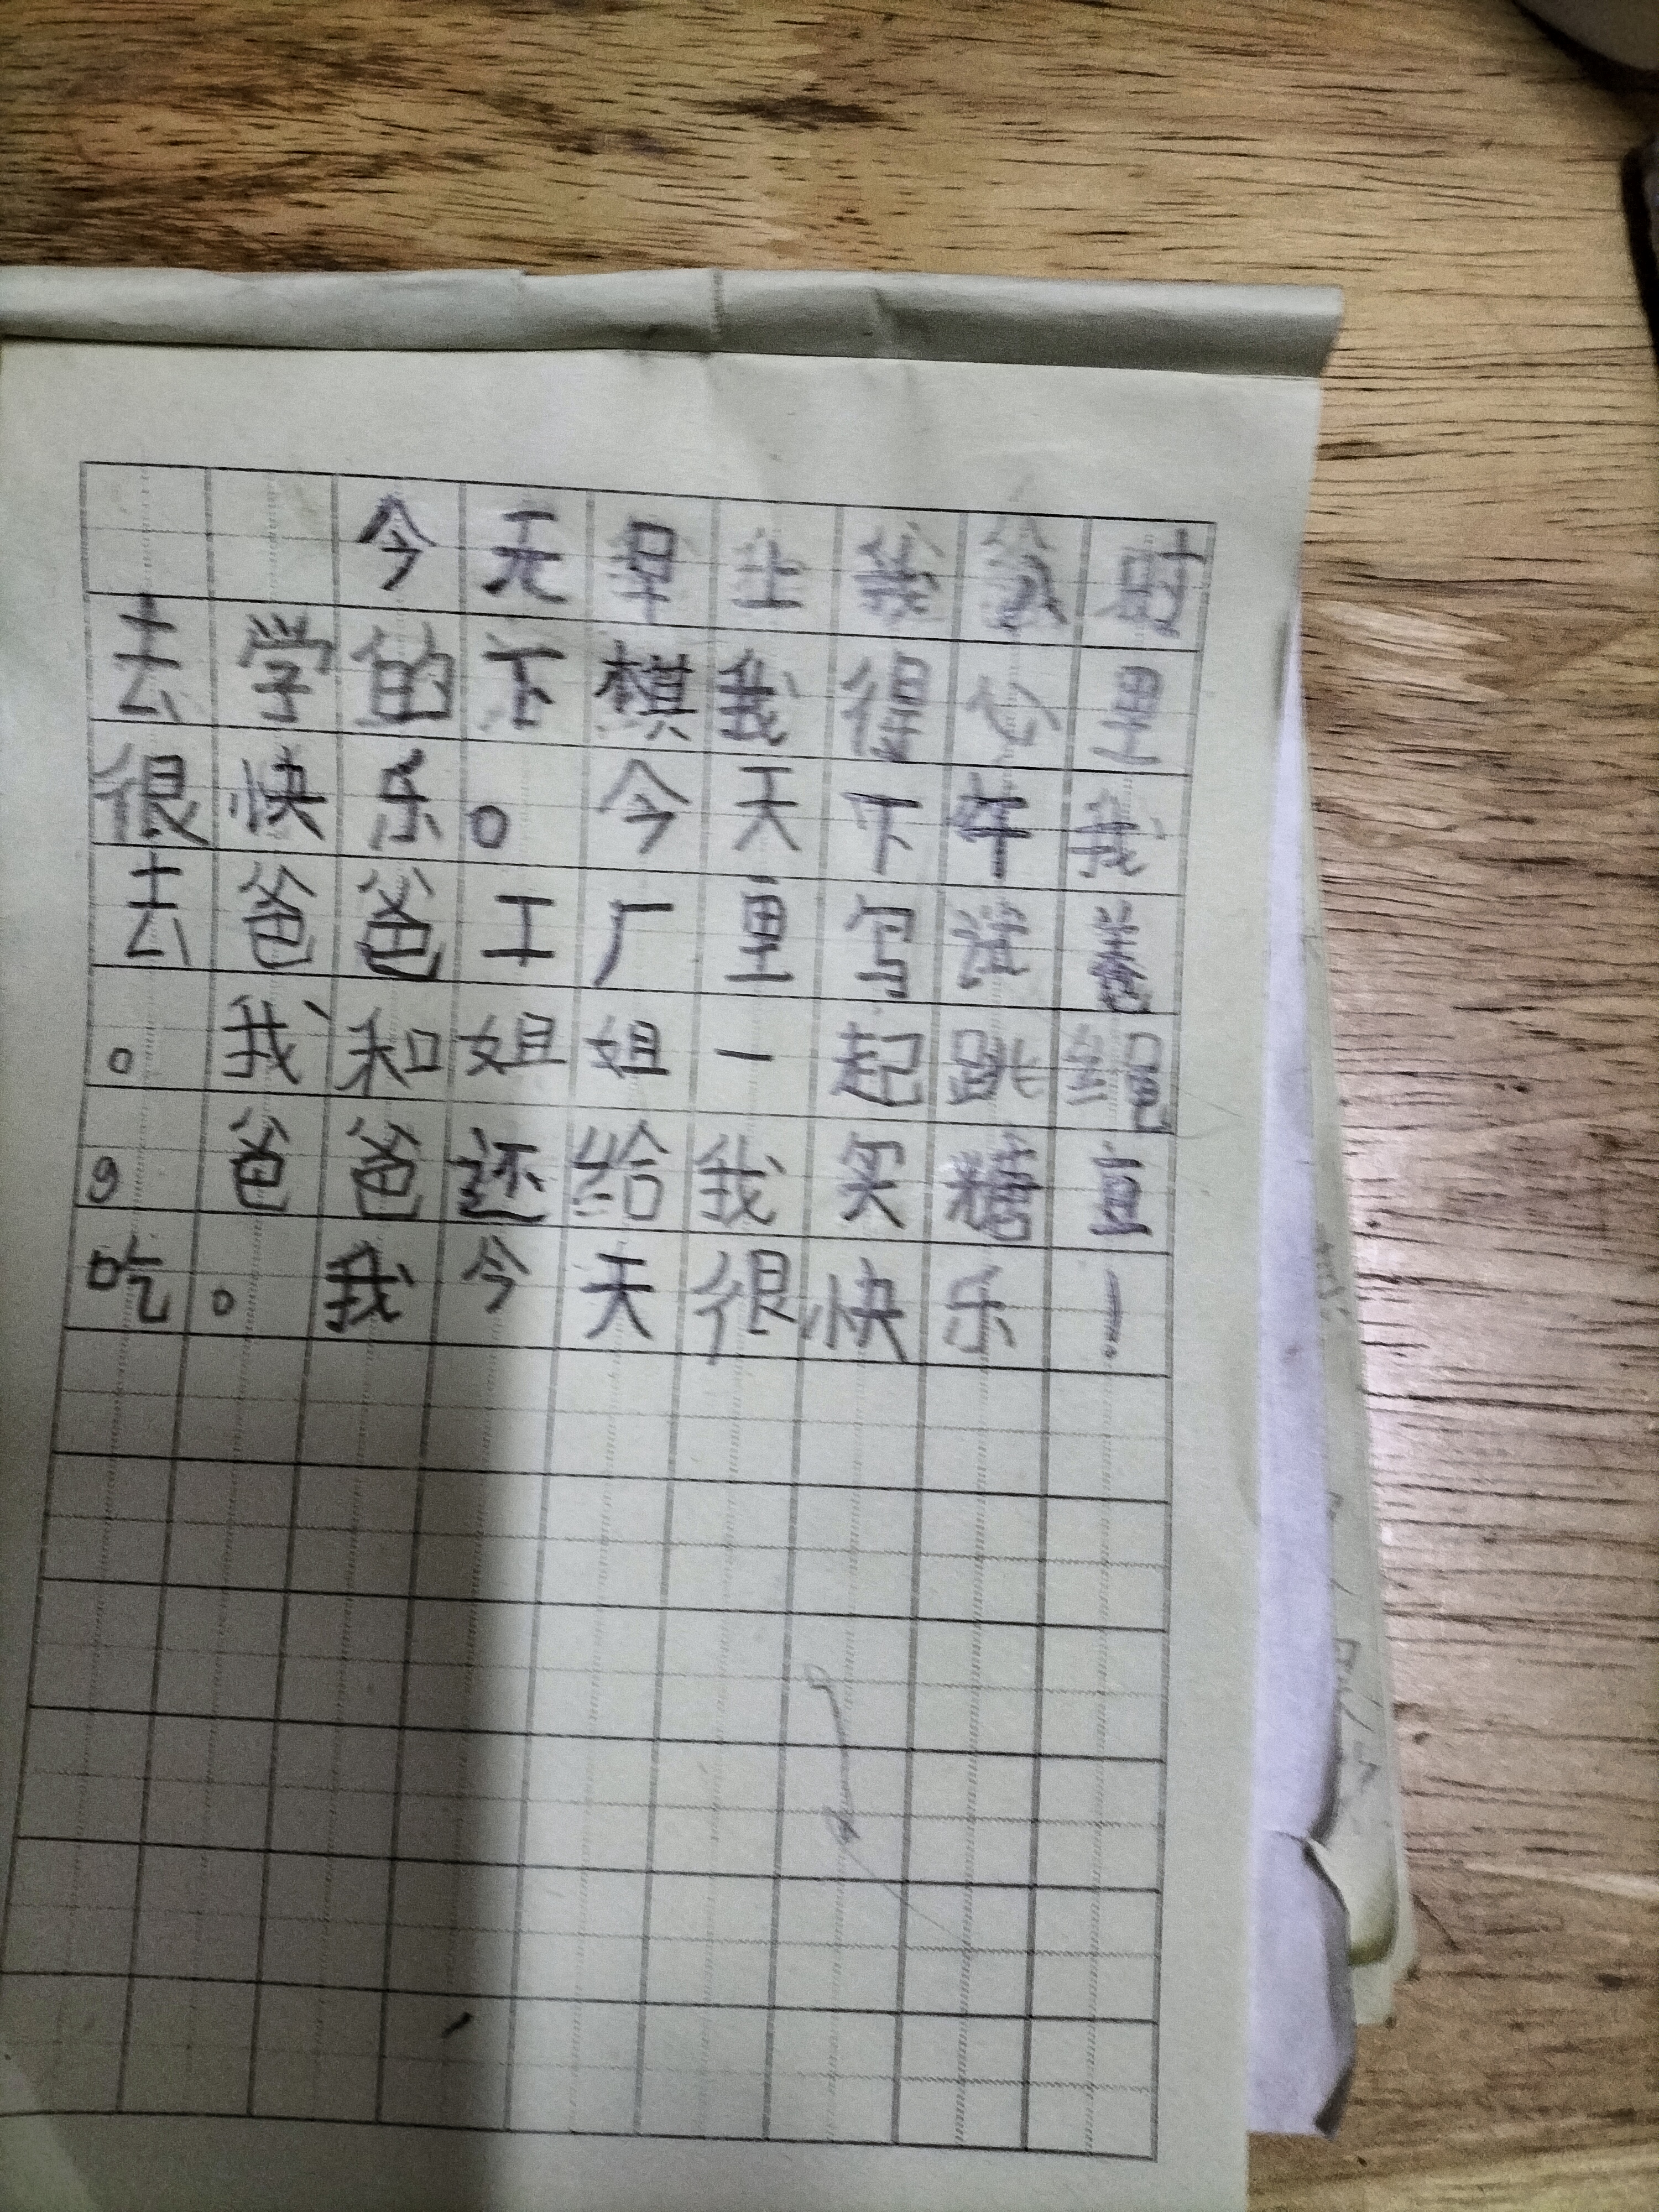 今天早上我
去学的下棋我得心里
很快乐。今天下午我
去爸爸工厂里写试卷
。我和姐姐一起跳绳
，爸爸还给我买糖直
吃。我今天很快乐！